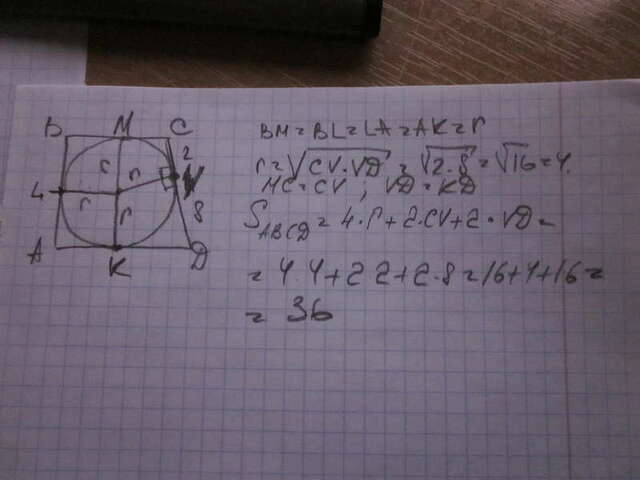 B M C
2
r r
L N
r r
8
A K D
BM=BL=LA=AK=r
r=√CV·VD=√2·8=√16=4.
MC=CV; VD=KD
S ABCD=4·r+2·CV+2·VD=
=4·4+2·2+2·8=16+4+16=
= 36